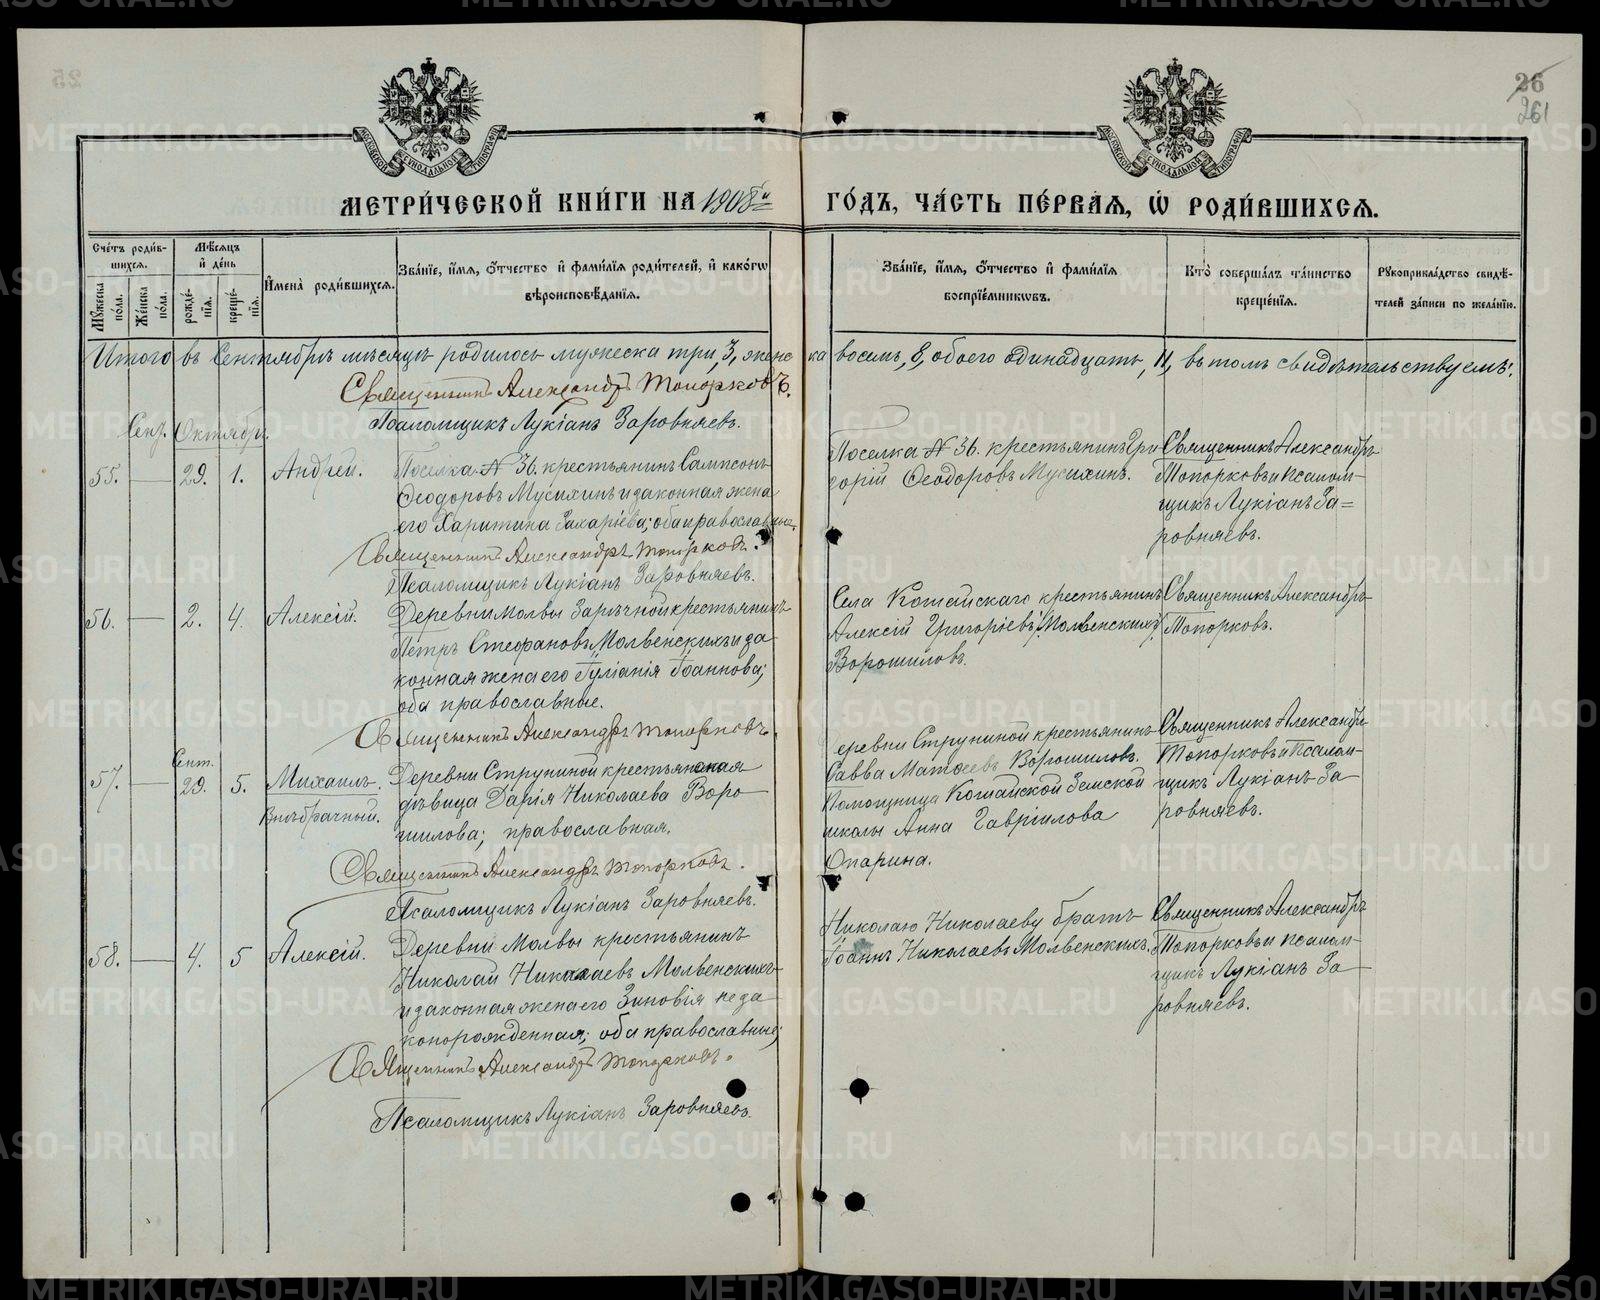 25
26
261
МОСКОВСКОЙ СѴНОДАЛЬНОЙ ТИПОГРАФІИ
МОСКОВСКОЙ СѴНОДАЛЬНОЙ ТИПОГРАФІИ
МЕТРИ́ЧЕСКОЙ КНИ́ГИ НА 1908й ГО́ДЪ, ЧА́СТЬ ПЕ́РВАѦ, Ѡ҆ РОДИ́ВШИХСѦ.
Сче́тъ роди́в-
шихсѧ.
Мꙋ́жеска по́ла.
Же́нска по́ла.
Мѣ́сѧцъ
и҆ де́нь
рожде́-нїѧ.
креще́-нїѧ.
И҆мена̀ роди́вшихсѧ.
Зва́нїе, и҆́мѧ, ѻ҆́тчество и҆ фами́лїѧ роди́телей, и҆ како́гѡ
вѣроисповѣ́данїѧ.
Зва́нїе, и҆́мѧ, ѻ҆́тчество и҆ фами́лїѧ
воспрїе́мникѡвъ.
Кто̀ соверша́лъ та́инство
креще́нїѧ.
Рꙋкоприкла́дство свидѣ́-
телей за́писи по жела́нїю.
Итого въ Сентябрѣ мѣсяцѣ родилось мужеска три, 3, женска восемь, 8, обоего одинадцать, 11, въ томъ свидѣтельствуемъ:
Священникъ Александръ Топорковъ.
Псаломщикъ Лукіанъ Заровняевъ.
Сент. Октябрь.
55. — 29. 1. Андрей.
Поселка № 36. крестьянинъ Сампсонъ
Ѳеодоровъ Мусихинъ и законная жена
его Харитина Захаріева; оба православные.
Священникъ Александръ Топорковъ.
Псаломщикъ Лукіанъ Заровняевъ.
Поселка № 36. крестьянинъ Гри
горій Ѳеодоровъ Мусихинъ.
Священникъ Александръ
Топорковъ и Псалом-
щикъ Лукіанъ За=
ровняевъ.
56. — 2. 4. Алексій.
Деревни Молвы Зарѣчной крестьянинъ
Петръ Стефановъ Молвенскихъ и за
конная жена его Іуліанія Іоаннова;
оба православные.
Священникъ Александръ Топорковъ.
Села Кошайскаго крестьянинъ
Алексій Григоріевъ (Молвенскихъ)
Ворошиловъ.
Священникъ Александръ
Топорковъ.
Сент.
57. — 29. 5. Михаилъ.
Внѣбрачный.
Деревни Струниной крестьянская
дѣвица Дарія Николаева Воро
шилова; православная.
Священникъ Александръ Топорковъ.
Псаломщикъ Лукіанъ Заровняевъ.
еревни Струниной крестьянинъ
Савва Матѳеевъ Ворошиловъ.
Помощница Кошайской Земской
школы Анна Гавріилова
Опарина.
Священникъ Александръ
Топорковъ и Псалом-
щикъ Лукіанъ За
ровняевъ.
58. — 4. 5 Алексій.
Деревни Молвы крестьянинъ
Николай Николаевъ Молвенскихъ
и законная жена его Зиновія неза
конорожденная; оба православные;
Священникъ Александръ Топорковъ.
Псаломщикъ Лукіанъ Заровняевъ.
Николаю Николаеву братъ
Іоаннъ Николаевъ Молвенскихъ.
Священникъ Александръ
Топорковъ и Псалом-
щикъ Лукіанъ За
ровняевъ.
METRIKI.GASO-URAL.RU